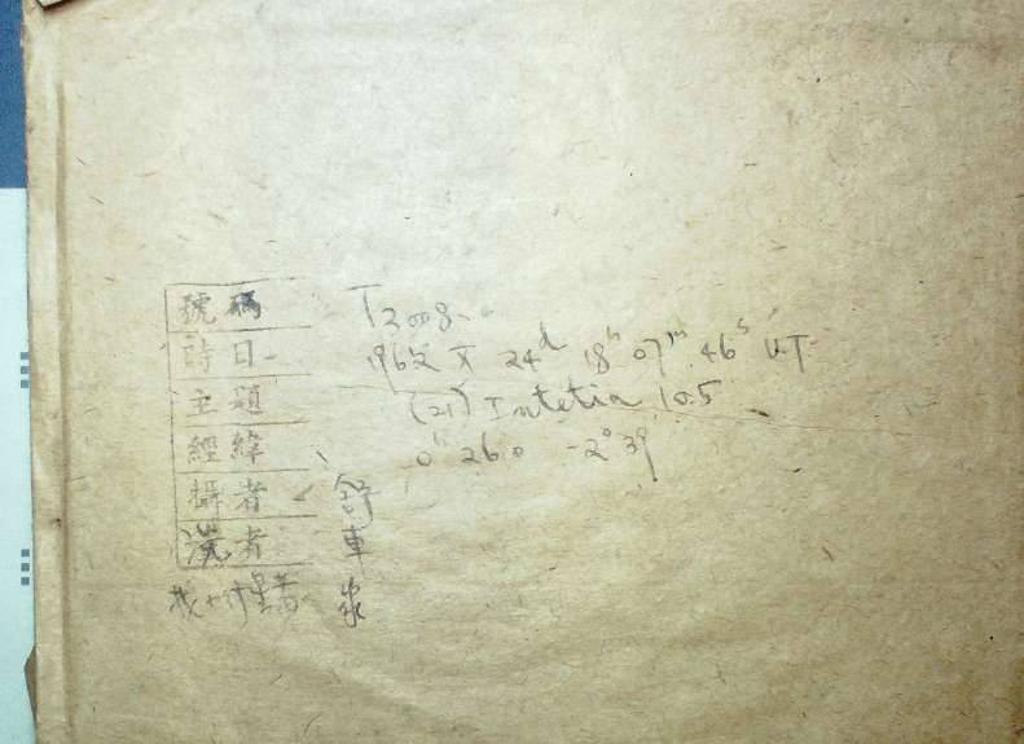 號碼 T3008
時日 1962 X 24d 18h 07m 46s UT
主題 (21) Intetia 10.5
經緯 0h 26.0 -2° 39
攝者 舒
洗者 車